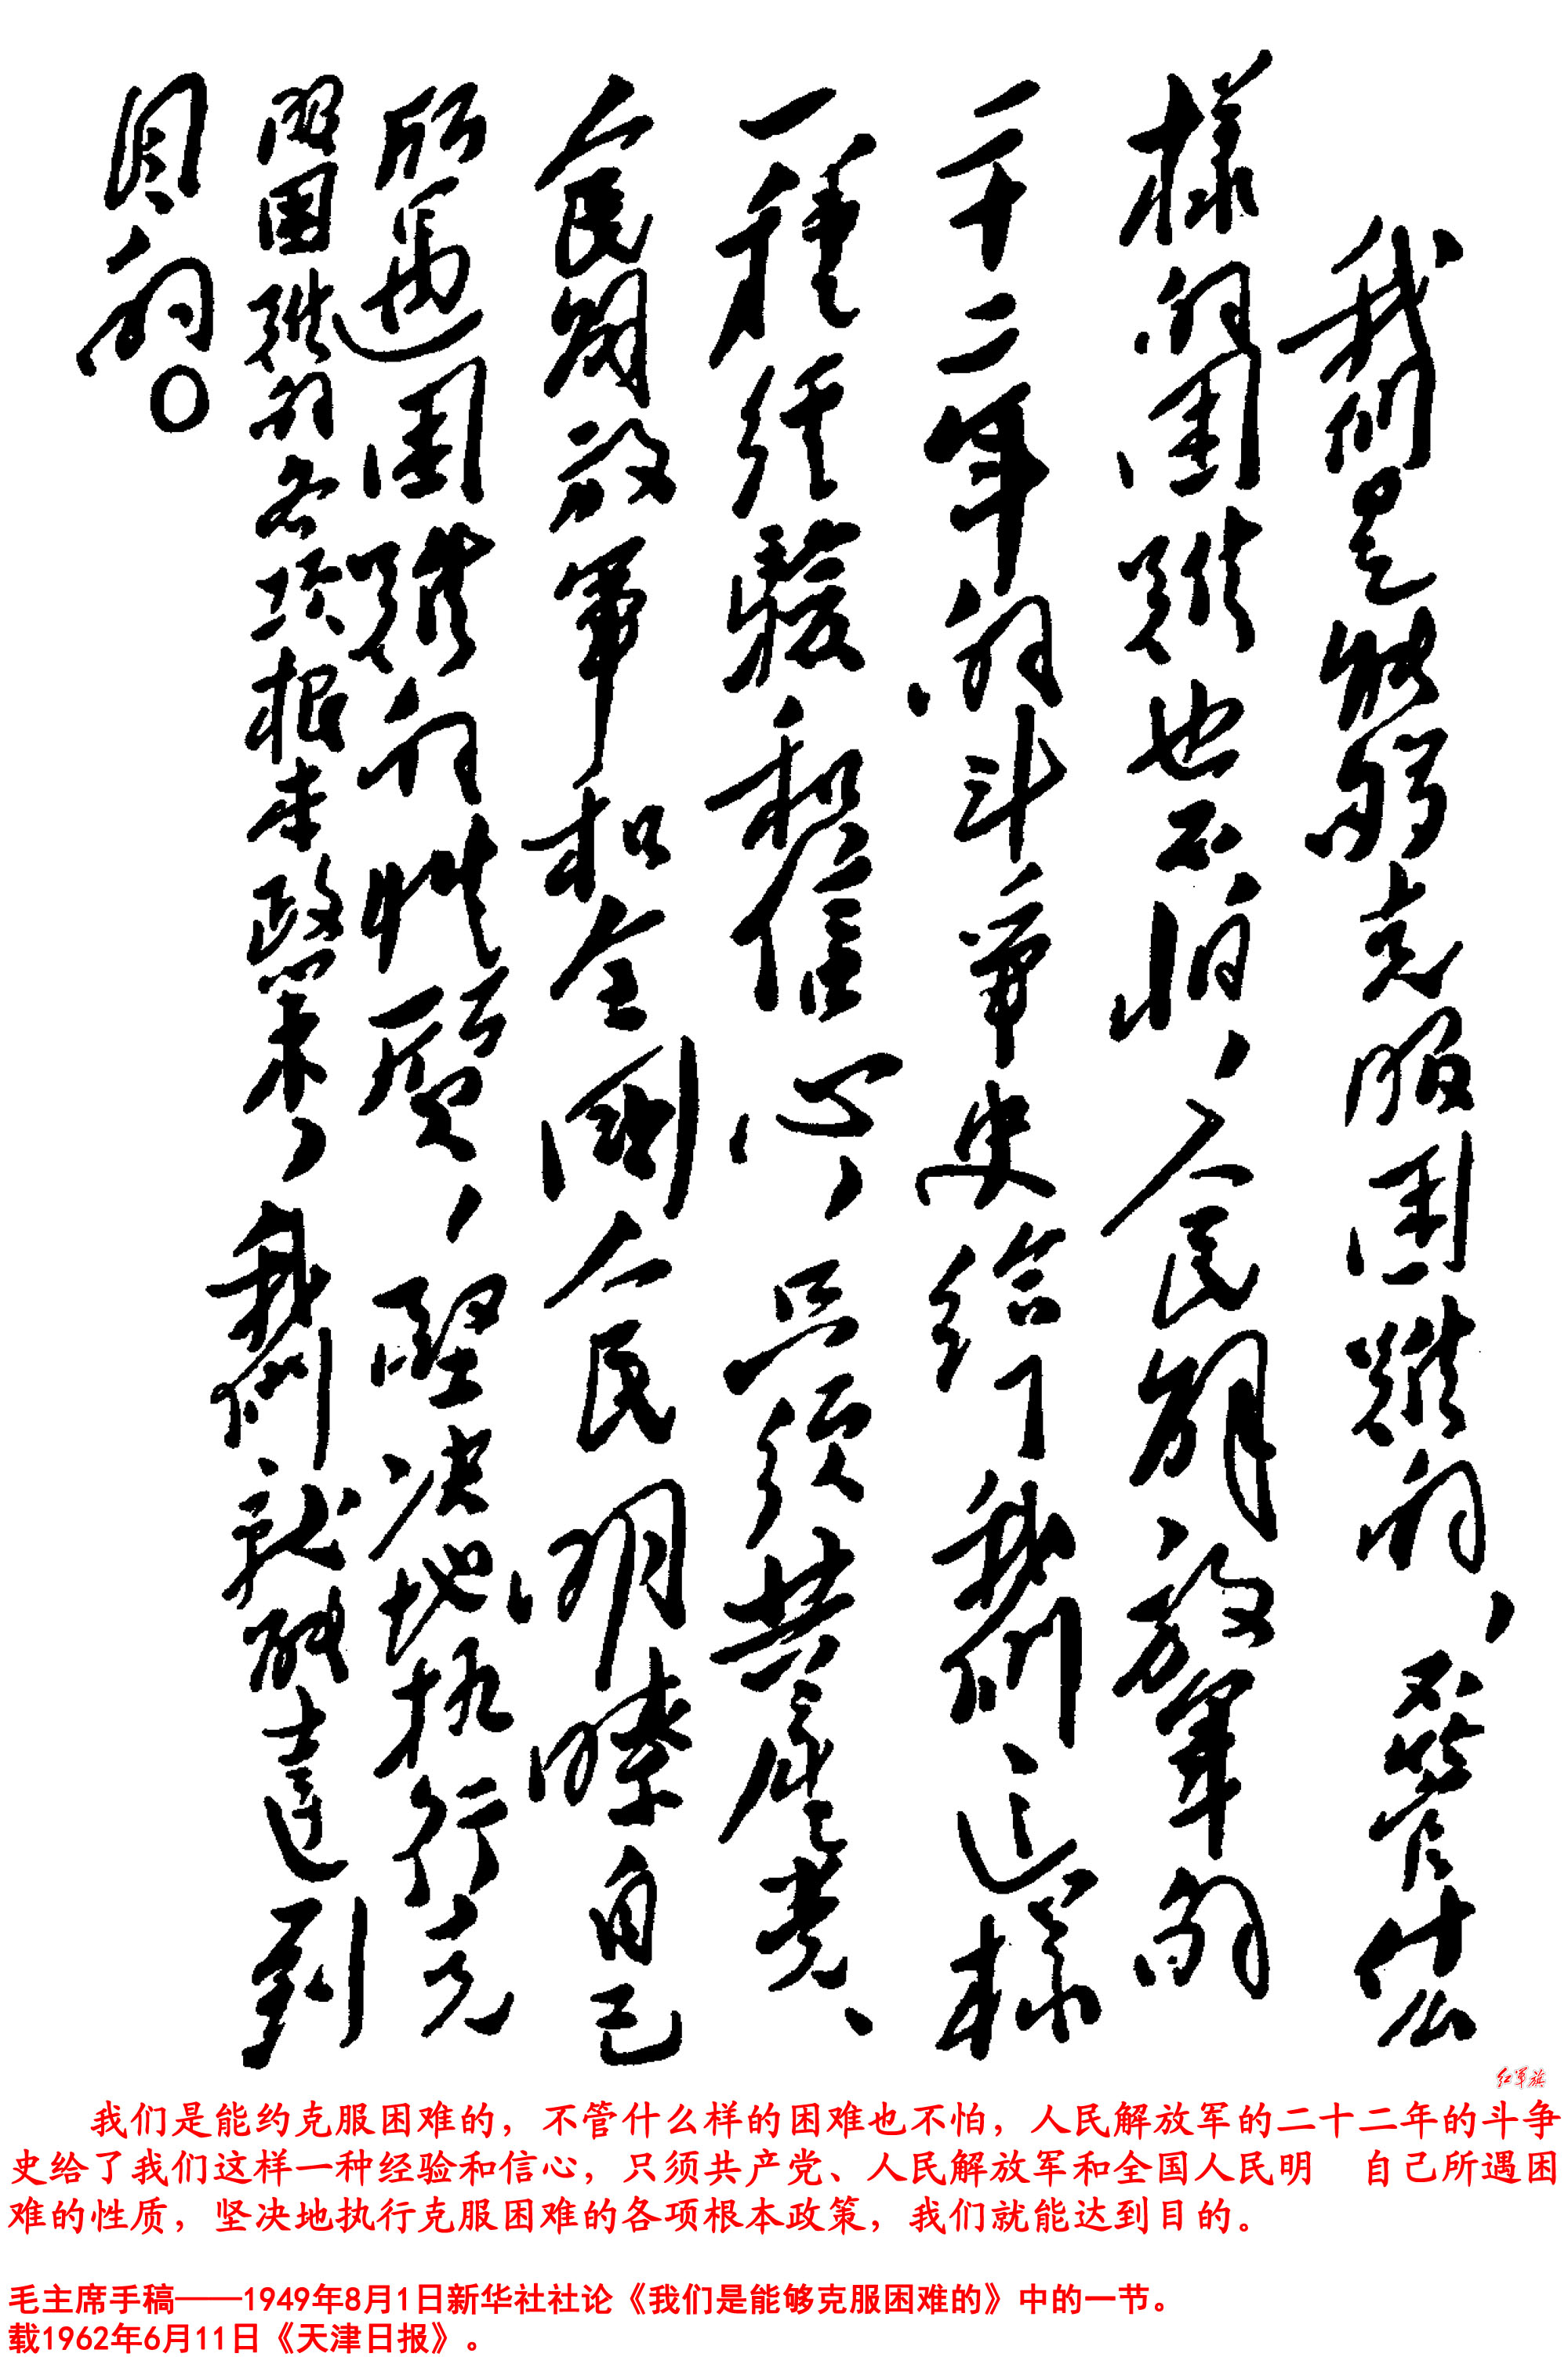 我们是能夠克服困難的，不管什么
樣的困難也不怕，人民解放軍的
二十二年的斗爭史给了我们这樣
一種经驗和信心，只须共產党、
人民解放軍和全國人民明瞭自己
所遇困難的性質，堅决地执行克
服困難的各项根本政策，我们就能達到
目的。
红军旗
我们是能约克服困难的，不管什么样的困难也不怕，人民解放军的二十二年的斗争
史给了我们这样一种经验和信心，只须共产党、人民解放军和全国人民明　自己所遇困
难的性质，坚决地执行克服困难的各项根本政策，我们就能达到目的。
毛主席手稿——1949年8月1日新华社社论《我们是能够克服困难的》中的一节。
载1962年6月11日《天津日报》。